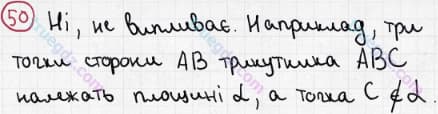 50 Ні, не випливає. Наприклад, три
точки сторони AB трикутника ABC
належать площині α, а точка C ∉ α.